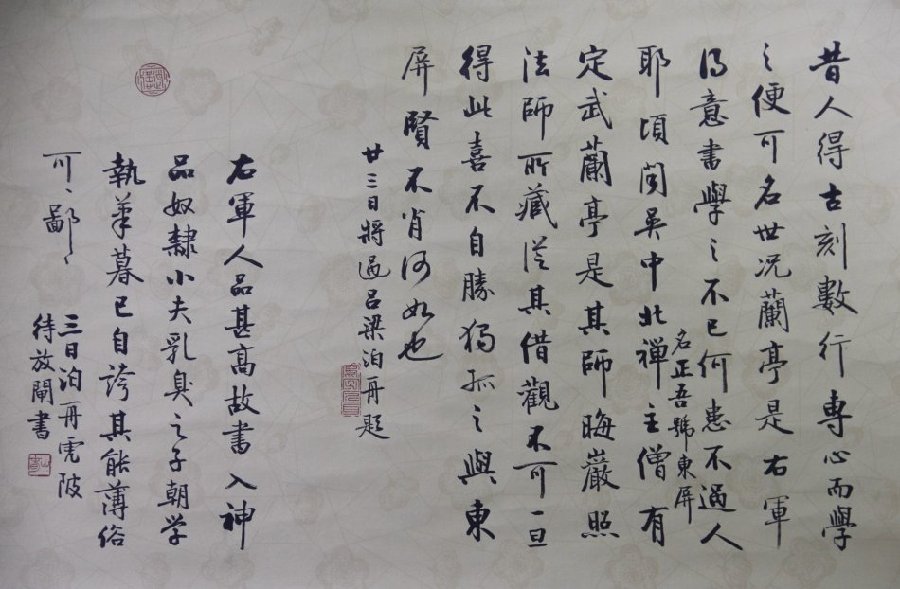 昔人得古刻數行專心而學
之便可名世况蘭亭是右軍
得意書學之不已何患不過人
耶頃聞吳中北禪主僧有
名正吾號東屏
定武蘭亭是其師晦巖照
法師所藏從其借觀不可一旦
得此喜不自勝獨孤之與東
屏賢不肖何如也
廿三日將過呂梁泊舟題
右軍人品甚高故書入神
品奴隸小夫乳臭之子朝学
執筆暮已自誇其能薄俗
可〻鄙〻
三日泊舟虎陂
待放閘書